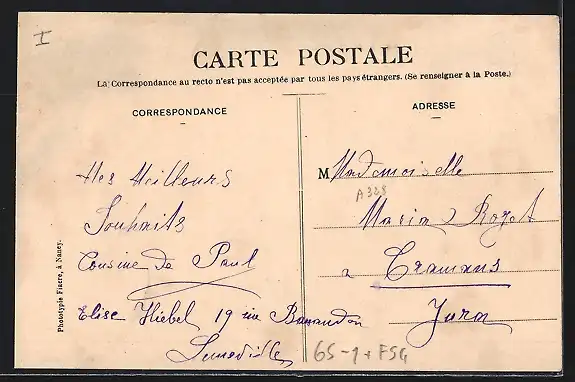 I
CARTE POSTALE
La Correspondance au recto n'est pas acceptée par tous les pays étrangers. (Se renseigner à la Poste.)
CORRESPONDANCE
Mes Meilleurs
Souhaits
Cousine de Paul
Elise Hiebel 19 rue
Phototypie Fiacre, à Nancy.
ADRESSE
M Mademoiselle
A328
Rozet
à Cramans
Jura
65-1+FSG